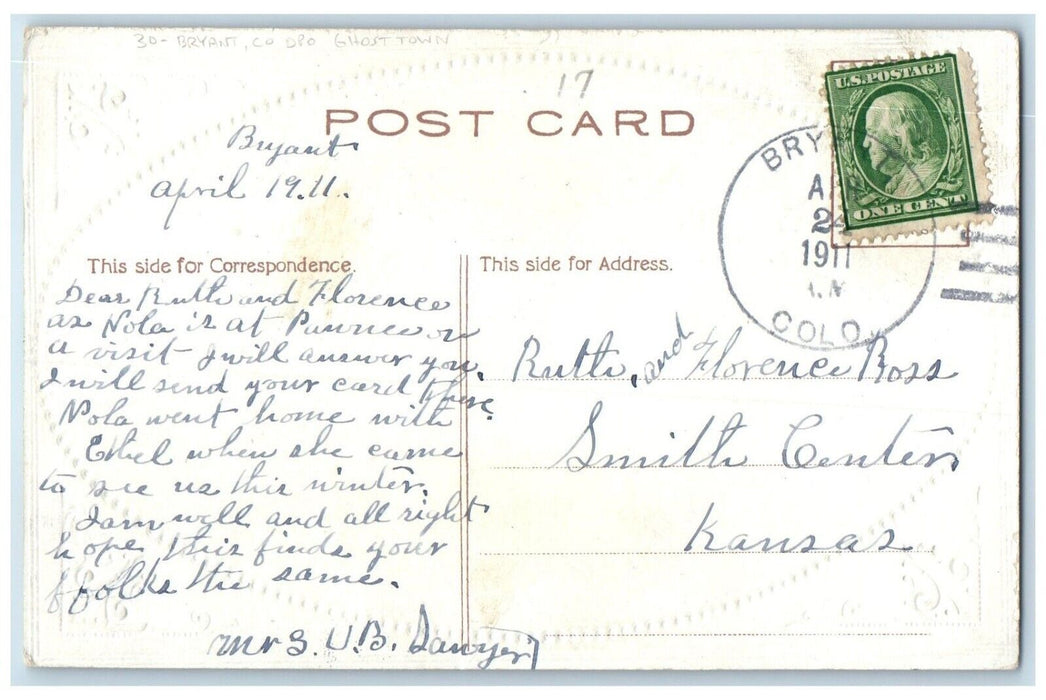 30- BRYANT, CO DPO GHOST TOWN
17
POST CARD
U.S. POSTAGE
ONE CENT
BRYANT
24
1911
COLO.
Bryant
April 19.11.
This side for Correspondence.
This side for Address.
Dear Ruth and Florence
as Nola is at Pawnee on
a visit I will answer you.
I will send your card there
Nola went home with
Ethel when she came
to see us this winter.
I am well and all right
hope this finds your
folks the same.
Mrs. U.B. Sawyer
Ruth, and Florence Ross
Smith Center,
Kansas